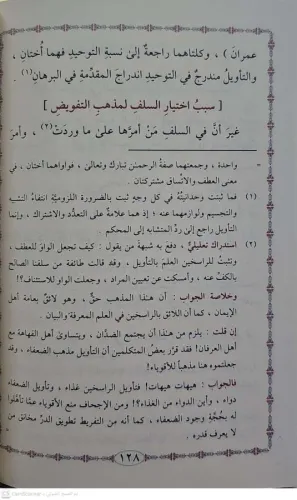 عمران ) ، وكلتاهما راجعةٌ إلىٰ نسبةِ التوحيدِ فهما أُختانِ ،
والتأويلُ مندرجٌ في التوحيدِ اندراجَ المقدّمةِ في البرهانِ(١) .
[ سببُ اختيارِ السلفِ لمذهبِ التفويضِ ]
غيرَ أنَّ في السلفِ مَنْ أمرَّها علىٰ ما وردَتْ(٢) ، وأمرَ
واحدة ، وجمعتهما صفةُ الرحمٰن تبارك وتعالىٰ ، فواواهما أختان ، في
معنى العطف والاتِّساق مشتركتان .
(١) فما ثبتت وحدانيَّتُهُ في كل وجهٍ ثبت بالضرورة اللزوميَّةِ انتفاءُ التشبيه
والتجسيم ولوازمهما عنه ؛ إذ هما علامةٌ على التعدُّد والاشتراك ، وإنما
التأويل راجع إلى ردِّ المتشابه إلى المحكم .
(٢) استدراك تعليليٌّ ، دفع به شبهةَ من يقول : كيف تجعل الواوَ للعطف ،
وتثبتُ للراسخين العلمَ بالتأويل ، وقد قالت طائفة من سلفنا الصالح
بالكفِّ عنه ، وأمسكت عن تعيين المراد ، وجعلت الواو للاستئناف ؟!
وخلاصة الجواب : أن هذا المذهب حقٌّ ، وهو لائقٌ بعامة أهل
الإيمان ، كما أن اللائق بالراسخين في العلم المعرفةُ والبيان .
إن قلت : يلزم من هٰذا أن يجتمع الضدَّان ، ويتساوىٰ أهل الفهاهة مع
أهل العرفان ! فقد قرَّر بعضُ المتكلمين أن التأويل مذهب الضعفاء ، وقد
جعلتموه هنا مذهباً للأقوياء !
فالجواب : هيهات هيهات ! فتأويل الراسخين غذاء ، وتأويل الضعفاء
دواء ، وأين الدواء من الغذاء ؟! ومن الإجحاف منع الأقوياء عمَّا تأهَّلوا
له بحُجَّةِ وجود الضعفاء ، كما أنه من التفريط تطويق الدرِّ مخانق من
لا يعرف قدره .
١٢٨